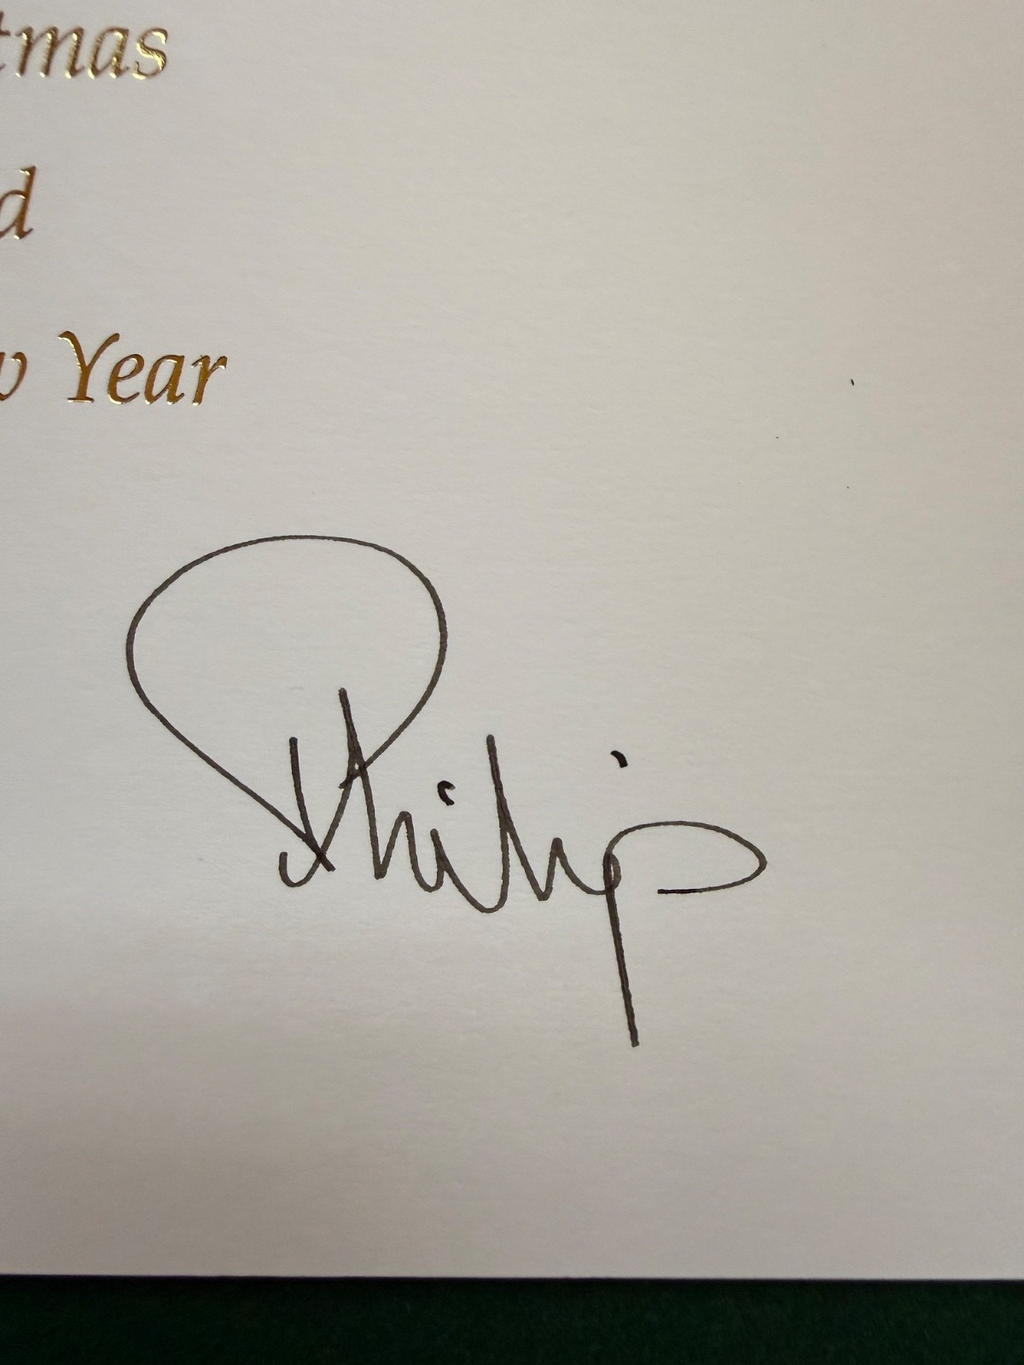 tmas
d
w Year
Philip